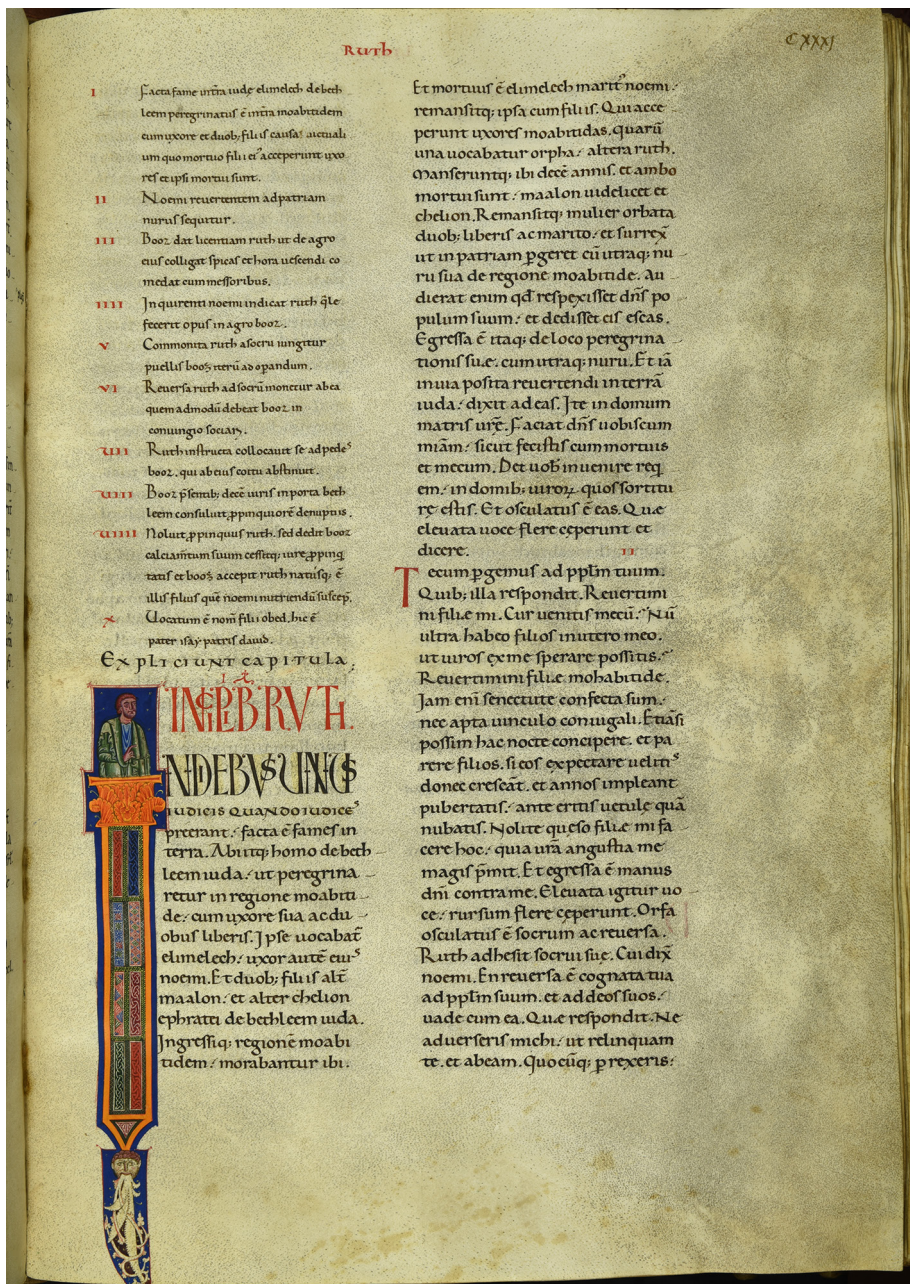 Ruth
CXXXI
I Facta fame int̄ra iudę elimelech debeth
leem peregrinatus ē int̄ra moabitidem
cum uxore et duob; filiis causa uictuali
um quo mortuo filii ei⁹ acceperunt uxo
res et ipsi mortui sunt.
II Noemi reuertentem ad patriam
nurus sequitur.
III Booz dat licentiam ruth ut de agro
eius colligat spicas et hora uescendi co
medat cum messoribus.
IIII Inquirenti noemi indicat ruth q̄le
fecerit opus in agro booz.
V Commonita ruth asocru iungitur
puellis booz iterū ad operandum.
VI Reuersa ruth ad socrū monetur ab ea
quem admodū debeat booz in
coniungio sociari.
VII Ruth instructa collocauit se ad pedes
booz. qui ab eius coitu abstinuit.
VIII Booz p̄sentib; decē uiris in porta beth
leem consuluit ꝓpinquiorē denuptiis.
VIIII Noluit ꝓpinquus ruth. sed dedit booz
calciam̄tum suum cessitq; iure ꝓpinq
tatis et booz accepit ruth natusq; ē
illis filius quē noemi nutriendū suscep̄.
X Uocatum ē nom̄ filii obed. hic ē
pater isaẏ patris dauid.
Expliciunt capitula.
INCIPIT LIB RUTH.
IN DIEBUS UNIUS
IUDICIS QUANDO IUDICES
preerant. facta ē fames in
terra. Abiitq; homo de beth
leem iuda. ut peregrina
retur in regione moabiti
de. cum uxore sua ac du
obus liberis. Ipse uocabat̄
elimelech. uxor autē eius
noemi. Et duob; filiis alt̄
maalon. et alter chelion
ephratei de bethleem iuda.
Ingressiq; regionē moabi
tidem. morabantur ibi.
Et mortuus ē elimelech marit⁹ noemi.
remansitq; ipsa cum filiis. Qui acce
perunt uxores moabitidas. quarū
una uocabatur orpha. altera ruth.
Manseruntq; ibi decē annis. et ambo
mortui sunt. maalon uidelicet et
chelion. Remansitq; mulier orbata
duob; liberis ac marito. et surrex̄
ut in patriam ꝑgeret cū utraq; nu
ru sua de regione moabitide. Au
dierat enim qđ respexisset dn̄s po
pulum suum. et dedisset eis escas.
Egressa ē itaq; de loco peregrina
tionis suę. cum utraq; nuru. Et iā
in uia posita reuertendi in terrā
iuda. dixit ad eas. Ite in domum
matris ur̄ę. Faciat dn̄s uobiscum
mīam. sicut fecistis cum mortuis
et mecum. Det uob̄ inuenire req̇
em. in domib; uiroꝝ quos sortitu
rę estis. Et osculatus ē eas. Quę
eleuata uoce flere ceperunt et
dicere. II
Tecum ꝑgemus ad ppl̄m tuum.
Quib; illa respondit. Reuertimi
ni filię mi. Cur uenitis mecū. Nū
ultra habeo filios in utero meo.
ut uiros ex me sperare possitis.
Reuertimini filię mohabitide.
Iam eni senectute confecta sum.
nec apta uinculo coniugali. Etiāsi
possim hac nocte concipere. et pa
rere filios. si eos expectare uelitis
donec crescāt. et annos impleant
pubertatis. ante eritis uetule quā
nubatis. Nolite queso filię mi fa
cere hoc. quia ur̄a angustia me
magis p̄mit. Et egressa ē manus
dn̄i contra me. Eleuata igitur uo
ce. rursum flere ceperunt. Orfa
osculatus ē socrum ac reuersa.
Ruth adhesit socrui suę. Cui dix̄
noemi. En reuersa ē cognata tua
ad ppl̄m suum. et ad deos suos.
uade cum ea. Quę respondit. Ne
aduerseris michi. ut relinquam
te. et abeam. Quocūq; ꝑrexeris.